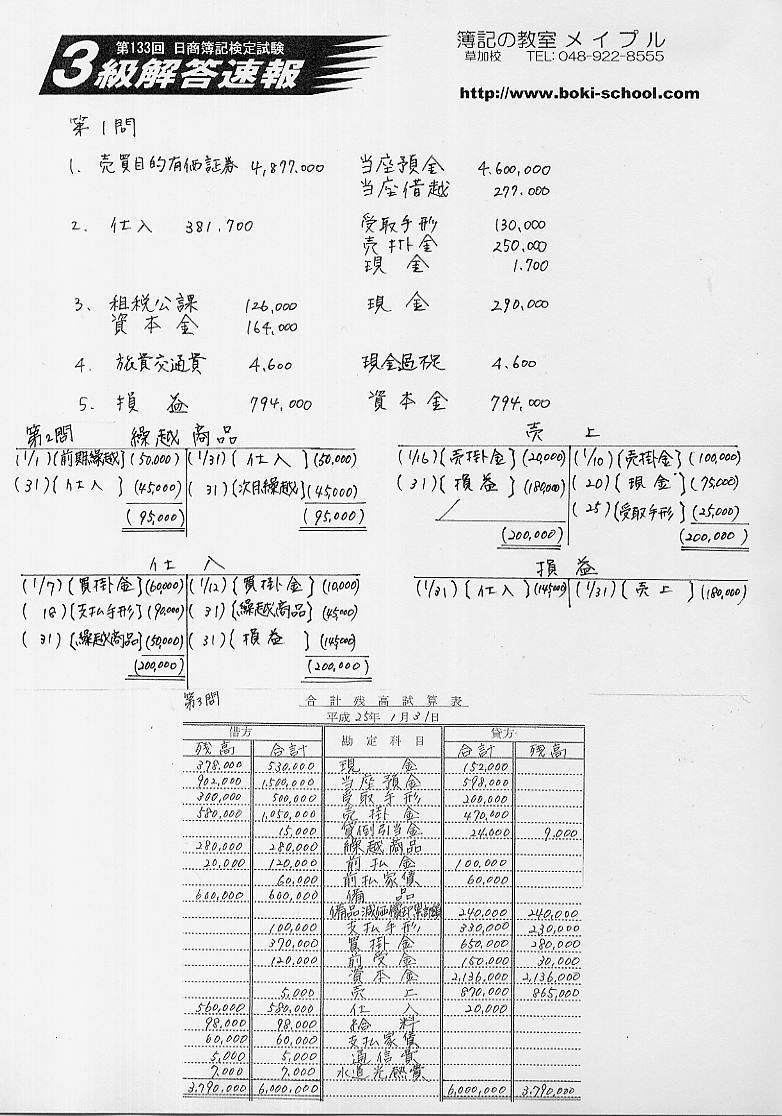 第133回 日商簿記検定試験
3級解答速報
簿記の教室 メイプル
草加校 TEL: 048-922-8555
http://www.boki-school.com
第1問
1. 売買目的有価証券 4,877.000 当座預金 4.600,000
当座借越 277.000
2. 仕入 381.700 受取手形 130,000
売掛金 250,000
現金 1.700
3. 租税公課 126,000 現金 290,000
資本金 164,000
4. 旅費交通費 4.600 現金過不足 4.600
5. 損益 794,000 資本金 794,000
第2問 繰越商品
(1/1) {前期繰越} (50,000) (1/31) {仕入} (50,000)
(31) {仕入} (45,000) (31) {次月繰越} (45,000)
(95,000) (95,000)
売上
(1/16) {売掛金} (20,000) (1/10) {売掛金} (100,000)
(31) {損益} (180,000) (20) {現金} (75,000)
(25) {受取手形} (25,000)
(200,000) (200,000)
仕入
(1/7) {買掛金} (60,000) (1/12) {買掛金} (10,000)
(18) {支払手形} (90,000) (31) {繰越商品} (45,000)
(31) {繰越商品} (50,000) (31) {損益} (145,000)
(200,000) (200,000)
損益
(1/31) {仕入} (145,000) (1/31) {売上} (180,000)
第3問 合計残高試算表
平成25年 1月31日
借方 勘定科目 貸方
残高 合計 合計 残高
378.000 530,000 現金 152,000
902,000 1,500,000 当座預金 598,000
300,000 500,000 受取手形 200,000
580,000 1,050,000 売掛金 470,000
15,000 貸倒引当金 24,000 9,000
280,000 280,000 繰越商品
20,000 120,000 前払金 100,000
60,000 前払家賃 60,000
600,000 600,000 備品
備品減価償却累計額 240,000 240,000
100,000 支払手形 330,000 230,000
370,000 買掛金 650,000 280,000
120,000 前受金 150,000 30,000
資本金 2,136,000 2,136,000
5,000 売上 870,000 865,000
560,000 580,000 仕入 20,000
98,000 98,000 給料
60,000 60,000 支払家賃
5,000 5,000 通信費
7,000 7,000 水道光熱費
3.790.000 6,000,000 6,000,000 3.790.000